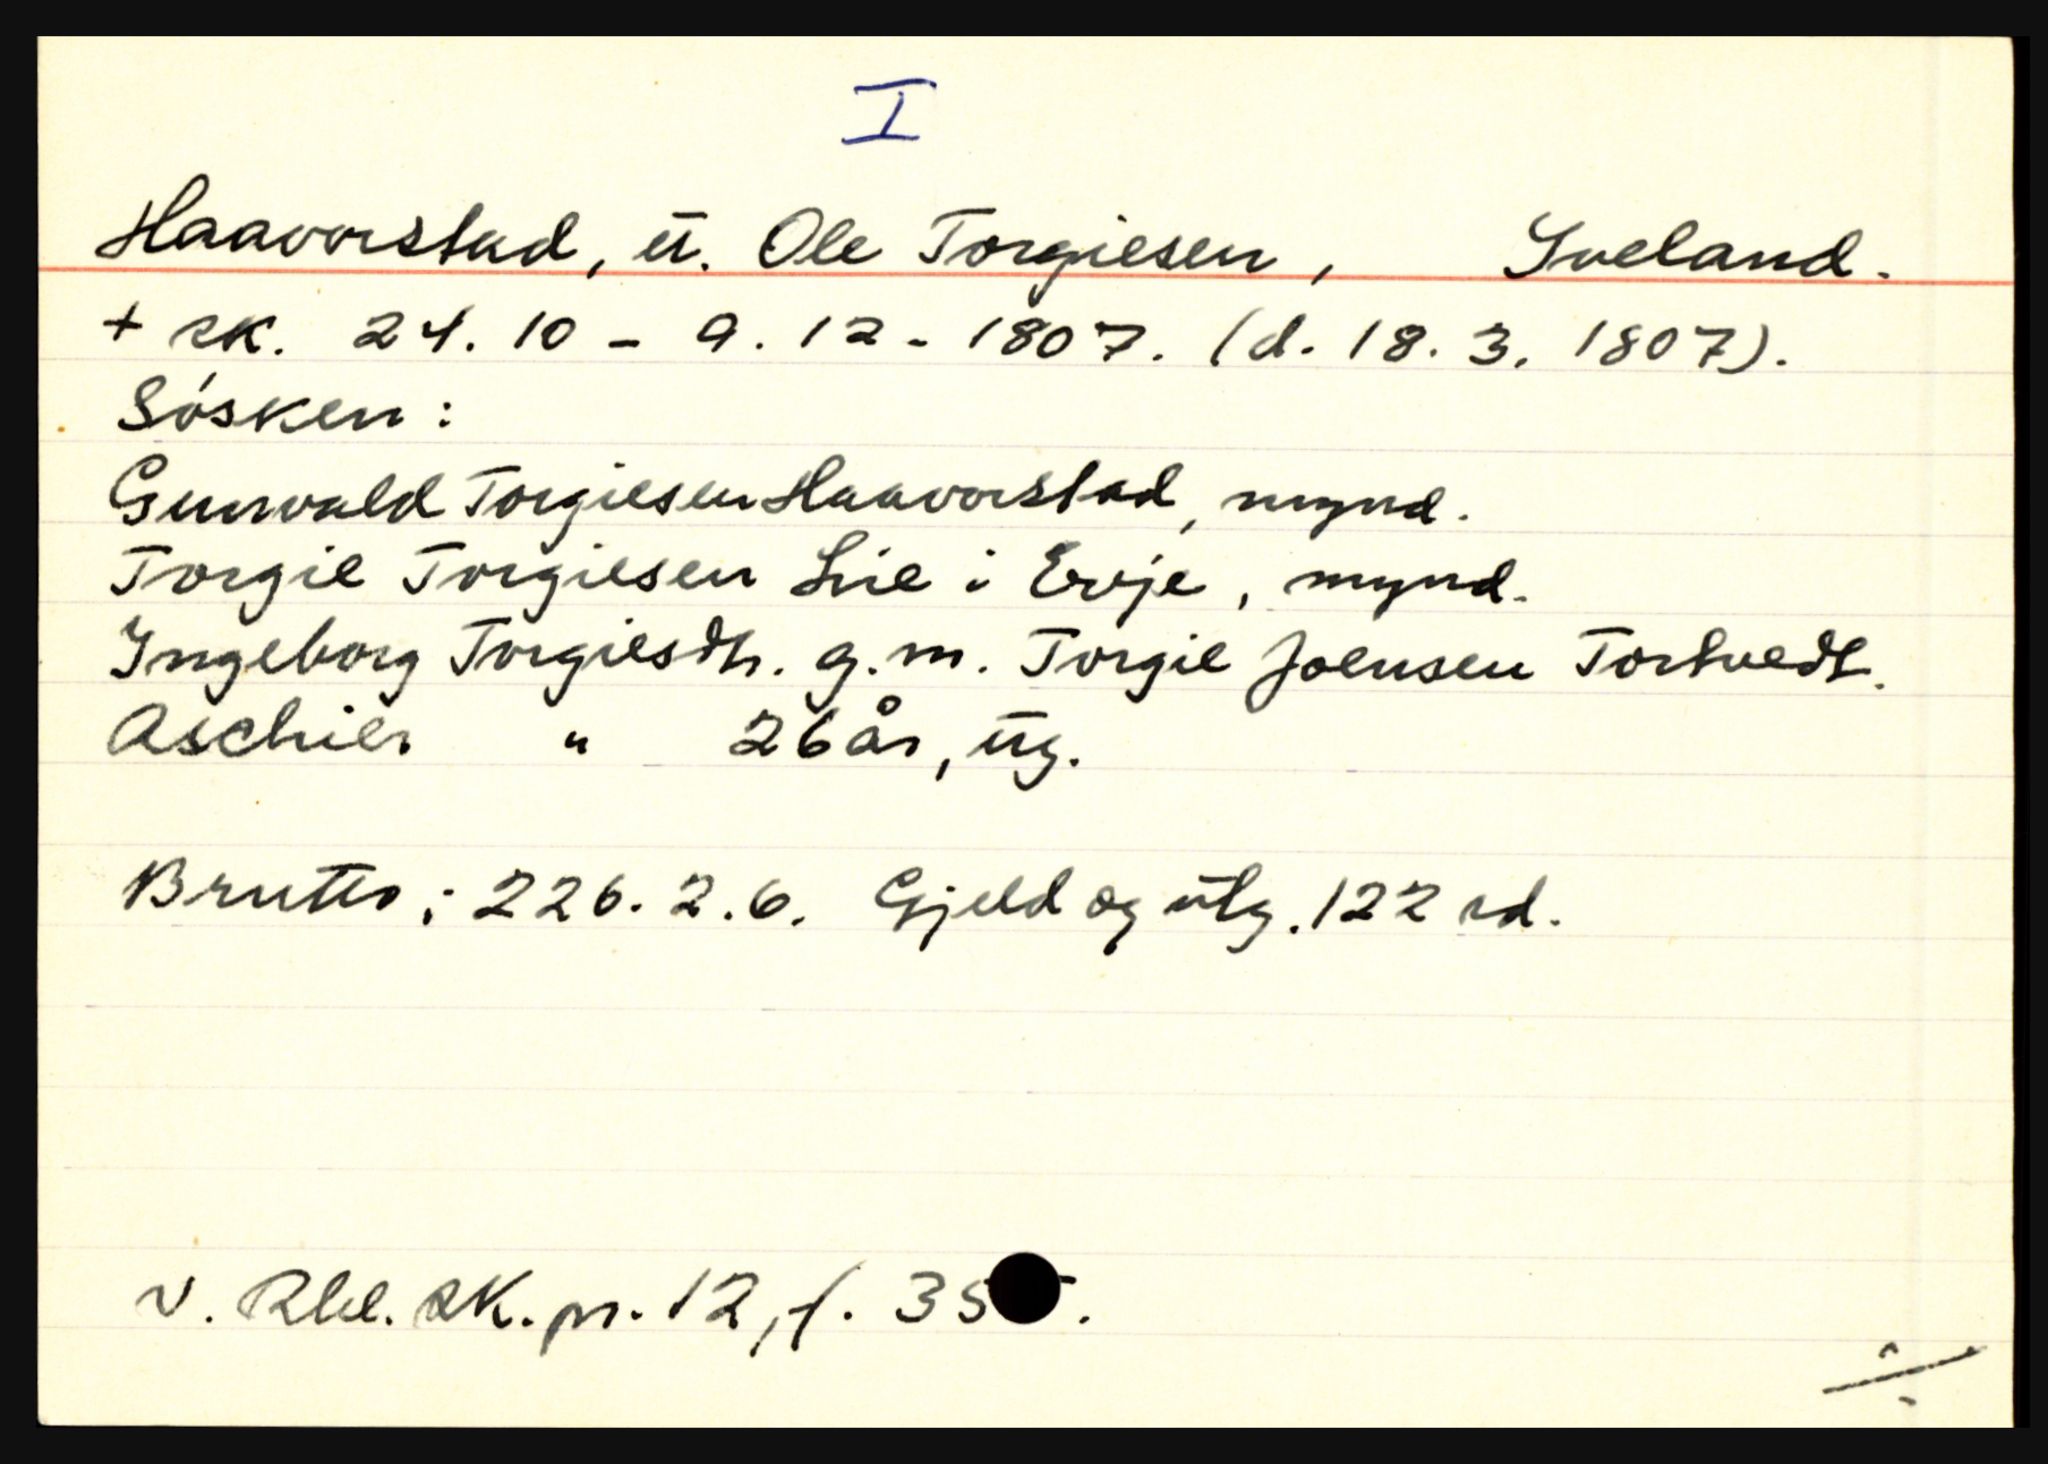 I
Haavorstad, u. Ole Torgiesen, Iveland.
+ sk. 24. 10 - 9. 12 - 1807. (d. 18. 3. 1807).
Søsken:
Gunvald Torgiesen Haavorstad, mynd.
Torgie Torgiesen Lie i Evje, mynd.
Ingeborg Torgiesdtr. g.m. Torgie Joensen Tortvedt.
Aschier " 26 år, ug.
Brutto: 226. 2. 6. Gjeld og utg. 122 rd.
v. Rbl. sk. pr. 12, f. 35